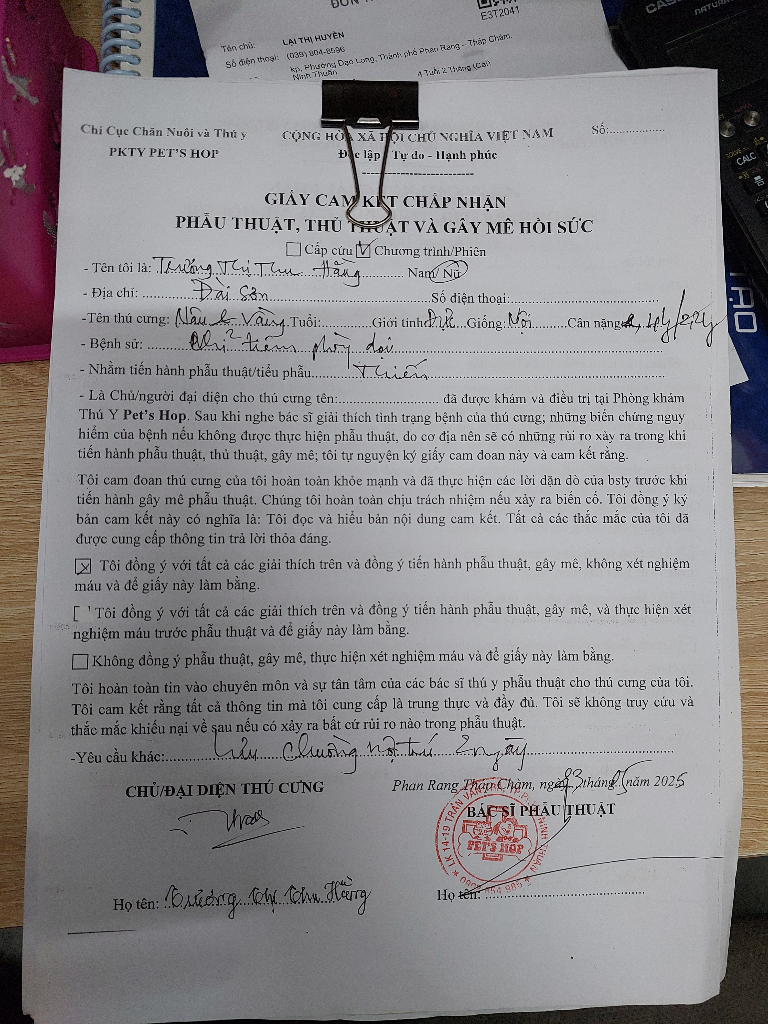 ĐƠN
E3T2041
Tên chủ: LẠI THỊ HUYỀN
Số điện thoại: (039) 804-8596
kp, Phường Đạo Long, Thành phố Phan Rang - Tháp Chàm,
Ninh Thuận
4 Tuổi 2 Tháng (Cái)
Chi Cục Chăn Nuôi và Thú y
CỘNG HÒA XÃ HỘI CHỦ NGHĨA VIỆT NAM
Số:
PKTY PET'S HOP
Độc lập Tự do - Hạnh phúc
GIẤY CAM KẾT CHẤP NHẬN
PHẪU THUẬT, THỦ THUẬT VÀ GÂY MÊ HỒI SỨC
Cấp cứu Chương trình/Phiên
- Tên tôi là: Trường Thị Thu Hằng Nam/ Nữ
- Địa chỉ: Đài Sơn Số điện thoại:
-Tên thú cưng: Nâu & Vàng Tuổi: Giới tính Đực Giống: Nội Cân nặng
- Bệnh sử: Chỉ tiêm phòng dại
- Nhằm tiến hành phẫu thuật/tiểu phẫu Thiến
- Là Chủ/người đại diện cho thú cưng tên: đã được khám và điều trị tại Phòng khám
Thú Y Pet's Hop. Sau khi nghe bác sĩ giải thích tình trạng bệnh của thú cưng; những biến chứng nguy
hiểm của bệnh nếu không được thực hiện phẫu thuật, do cơ địa nên sẽ có những rủi ro xảy ra trong khi
tiến hành phẫu thuật, thủ thuật, gây mê; tôi tự nguyện ký giấy cam đoan này và cam kết rằng.
Tôi cam đoan thú cưng của tôi hoàn toàn khỏe mạnh và đã thực hiện các lời dặn dò của bsty trước khi
tiến hành gây mê phẫu thuật. Chúng tôi hoàn toàn chịu trách nhiệm nếu xảy ra biến cố. Tôi đồng ý ký
bản cam kết này có nghĩa là: Tôi đọc và hiểu bản nội dung cam kết. Tất cả các thắc mắc của tôi đã
được cung cấp thông tin trả lời thỏa đáng.
Tôi đồng ý với tất cả các giải thích trên và đồng ý tiến hành phẫu thuật, gây mê, không xét nghiệm
máu và để giấy này làm bằng.
Tôi đồng ý với tất cả các giải thích trên và đồng ý tiến hành phẫu thuật, gây mê, và thực hiện xét
nghiệm máu trước phẫu thuật và để giấy này làm bằng.
Không đồng ý phẫu thuật, gây mê, thực hiện xét nghiệm máu và để giấy này làm bằng.
Tôi hoàn toàn tin vào chuyên môn và sự tận tâm của các bác sĩ thú y phẫu thuật cho thú cưng của tôi.
Tôi cam kết rằng tất cả thông tin mà tôi cung cấp là trung thực và đầy đủ. Tôi sẽ không truy cứu và
thắc mắc khiếu nại về sau nếu có xảy ra bất cứ rủi ro nào trong phẫu thuật.
-Yêu cầu khác: Lưu chuồng nội trú 2 ngày
CHỦ/ĐẠI DIỆN THÚ CƯNG
Phan Rang Tháp Chàm, ngày 23 tháng 05 năm 2025
BÁC SĨ PHẪU THUẬT
PET'S HOP
Họ tên: Trường Thị Thu Hằng
Họ tên: